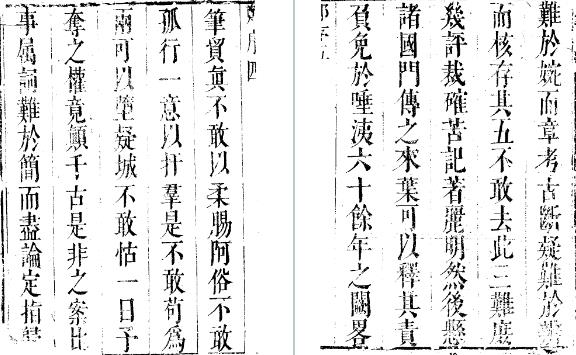 序四
筆貿眞不敢以柔腸阿俗不敢
孤行一意以扞羣是不敢苟爲
兩可以墮疑城不敢怙一日予
奪之權竟顚千古是非之案比
事屬詞難於簡而盡論定指
難於婉而章考古斷疑難於
而核存其五不敢去此三難庶
幾評裁確苦記著麗明然後懸
諸國門傳之來葉可以釋其責
負免於唾洟六十餘年之闕畧